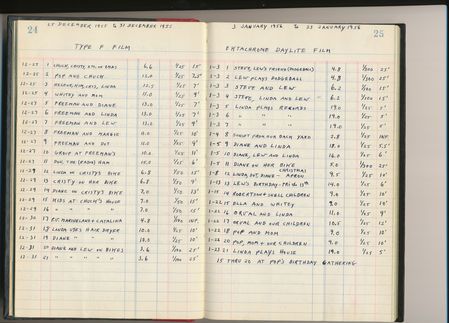 24
25 DECEMBER 1955 to 31 DECEMBER 1955
TYPE F FILM
12-25 1 CHUCK, CRISTY, ON ROADS 6.6 1/25 15'
12-25 2 POP AND CHUCK 13.0 1/25 7.5'
12-25 3 LINDA 12.5 1/25 7'
12-25 4 WHITEY AND MOM 11.0 1/25 9'
12-27 5 FREEMAN AND DIANE 13.0 1/25 7'
12-27 6 FREEMAN AND LINDA 13.0 1/25 7'
12-27 7 FREEMAN AND LEW 13.0 1/25 9'
12-27 8 FREEMAN AND MARGIE 11.0 1/25 10'
12-27 9 FREEMAN AND DOT 11.0 1/25 9'
12-27 10 GROUP AT FREEMAN'S 10.0 1/25 10'
12-27 11 DOC, TIM (RADIO) HAM 15.0 1/25 6'
12-29 12 LINDA ON CRISTY'S BIKE 6.8 1/50 15'
12-29 13 CRISTY ON HER BIKE 6.8 1/50 9'
12-29 14 DIANE ON CRISTY'S BIKE 7.0 1/50 13'
12-29 15 KIDS AT CHUCK'S HOUSE 7.0 1/50 15'
12-29 16 " " " 7.0 1/50 15'
12-31 17 PT. MARINELAND & CATALINA 4.8 1/100 INF.
12-31 18 LINDA USES HAIR DRYER 10.0 1/25 10'
12-31 19 DIANE " " " 10.0 1/25 10'
12-31 20 DIANE AND LEW ON BIKES 3.6 1/100 25'
12-31 21 " " " " " 3.6 1/100 25'
3 JANUARY 1956 to 23 JANUARY 1956
25
EKTACHROME DAYLITE FILM
1-3 1 STEVE, LEW'S FRIEND (DODGEBALL) 4.8 1/100 25'
1-3 2 LEW PLAYS DODGEBALL 4.8 1/100 25'
1-3 3 STEVE AND LEW 6.2 1/100 15'
1-3 4 STEVE, LINDA AND LEW 6.2 1/100 15'
1-3 5 LINDA PLAYS RECORDS 19.0 1/25 5'
1-3 6 " " " 19.0 1/25 5'
1-3 7 " " " 19.0 1/25 5'
1-4 8 SUNSET FROM OUR BACK YARD 2.8 1/25 INF.
1-5 9 DIANE AND LINDA 18.0 1/25 5.5'
1-5 10 DIANE, LEW AND LINDA 16.0 1/25 6'
1-5 11 DIANE ON HER BIKE 5.0 1/100 25'
1-8 12 LINDA, DOT, DIANE - CHRISTMAS APRON 9.5 1/25 10'
1-13 13 LEW'S BIRTHDAY - FRI. THE 13th 14.0 1/25 6'
1-15 14 ROBERTSON & SHELL CHILDREN 9.0 1/25 10'
1-22 15 ELLA AND WHITEY 9.0 1/25 10'
1-22 16 ORVAL AND LINDA 11.0 1/25 9'
1-22 17 ORVAL AND OUR CHILDREN 10.5 1/25 12'
1-22 18 POP AND MOM 9.0 1/25 10'
1-22 20 POP, MOM & OUR CHILDREN 9.0 1/25 10'
1-23 21 LINDA PLAYS HOUSE 19.0 1/25 5'
15 THRU 20 AT POP'S BIRTHDAY GATHERING